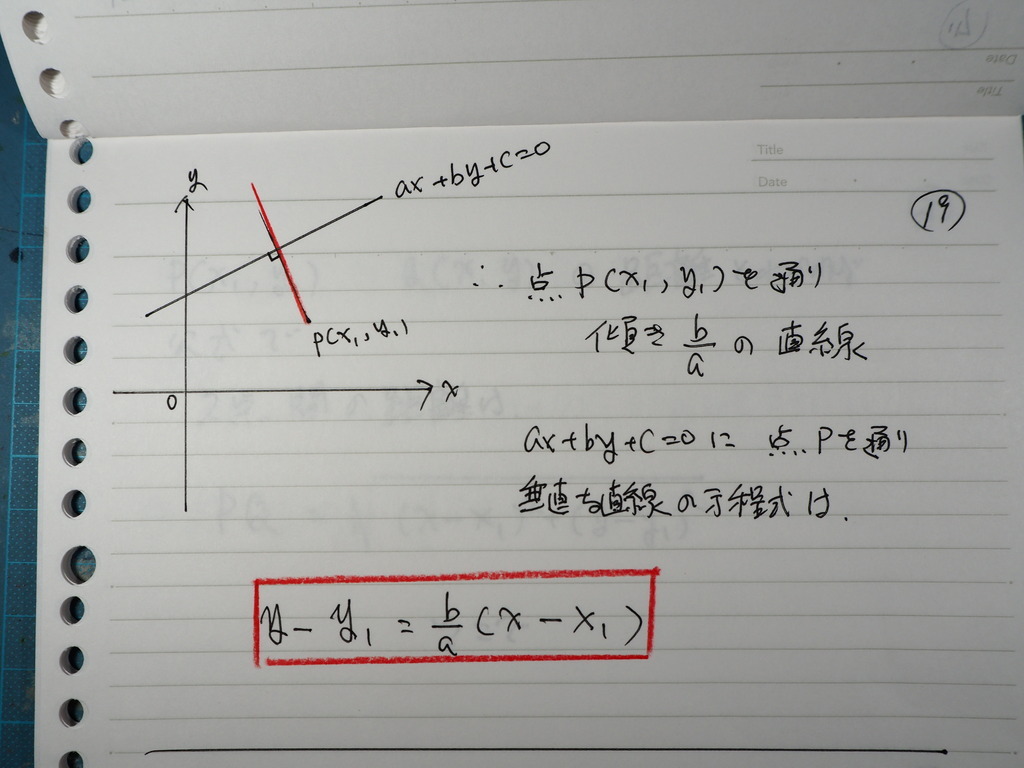 Title
Date
⑲
y
ax+by+c=0
P(x₁, y₁)
0
x
∴ 点P(x₁, y₁)を通り
傾き b/a の直線
ax+by+c=0に 点Pを通り
垂直な直線の方程式は.
y - y₁ = b/a (x - x₁)